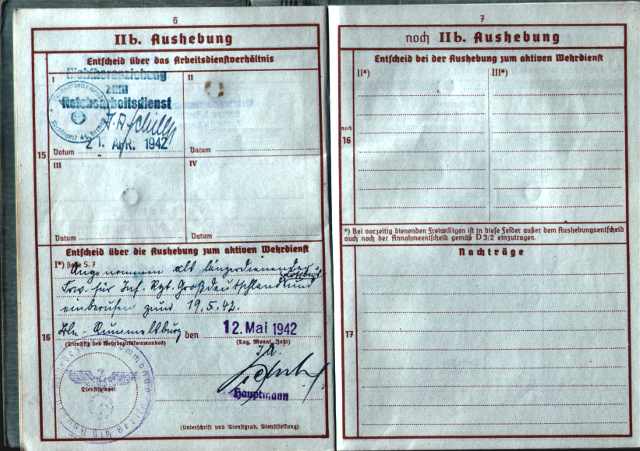 6
II b. Aushebung
Entscheid über das Arbeitsdienstverhältnis
I
II
zum
Reichsarbeitsdienst
21. APR. 1942
15
Datum
Datum
III
IV
Datum
Datum
Entscheid über die Aushebung zum aktiven Wehrdienst
I*)
Angenommen als längerdienender
Frw. für Inf. Rgt. Großdeutschland und
einberufen zum 19.5.42.
16
Bln. Rummelsburg den 12. Mai 1942
(Dienstsitz des Wehrbezirkskommandos) (Tag, Monat, Jahr)
Dienstsiegel
Hauptmann
(Unterschrift und Dienstgrad, Dienststellung)
7
noch II b. Aushebung
Entscheid bei der Aushebung zum aktiven Wehrdienst
II*)
III*)
noch
16
*) Bei vorzeitig dienenden Freiwilligen ist in diese Felder außer dem Aushebungsentscheid
auch noch der Annahmeentscheid gemäß D 3/2 einzutragen.
Nachträge
17